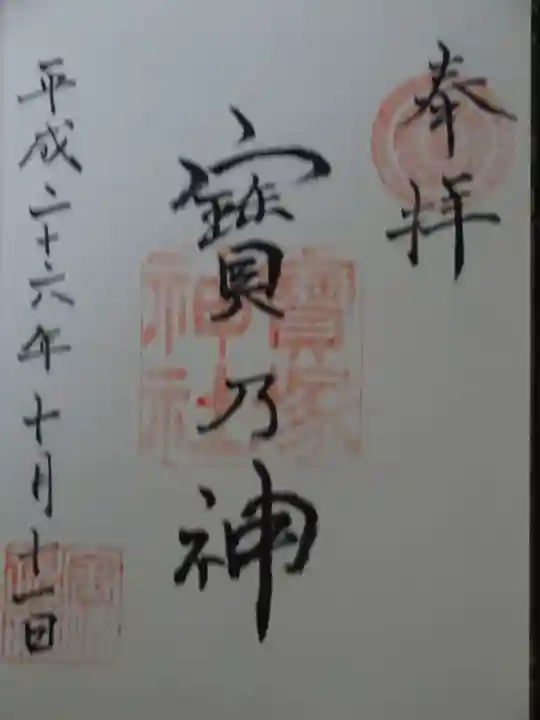 奉拝
寳乃神
平成二十六年十月十一日
神社